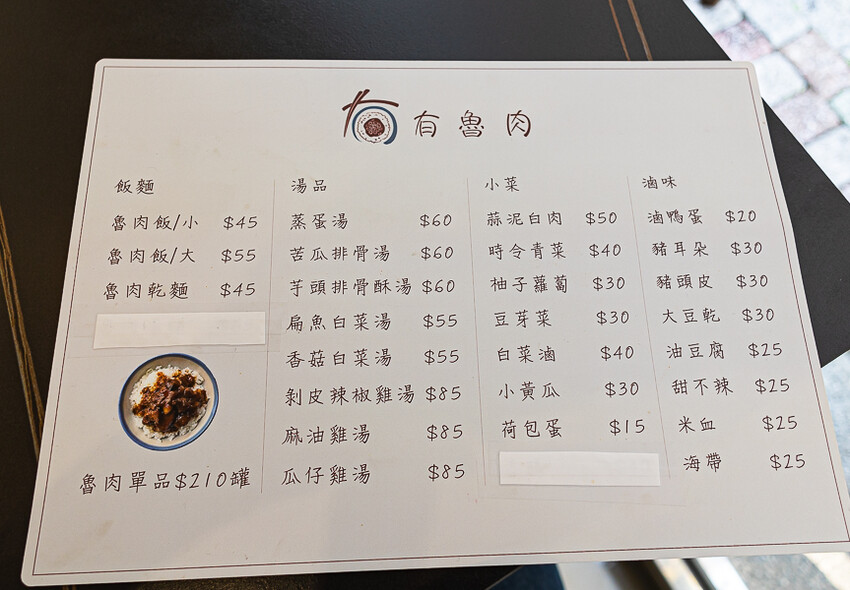 有魯肉
飯麵
魯肉飯/小 $45
魯肉飯/大 $55
魯肉乾麵 $45
魯肉單品$210罐
湯品
蒸蛋湯 $60
苦瓜排骨湯 $60
芋頭排骨酥湯 $60
扁魚白菜湯 $55
香菇白菜湯 $55
剝皮辣椒雞湯 $85
麻油雞湯 $85
瓜仔雞湯 $85
小菜
蒜泥白肉 $50
時令青菜 $40
柚子蘿蔔 $30
豆芽菜 $30
白菜滷 $40
小黃瓜 $30
荷包蛋 $15
滷味
滷鴨蛋 $20
豬耳朵 $30
豬頭皮 $30
大豆乾 $30
油豆腐 $25
甜不辣 $25
米血 $25
海帶 $25